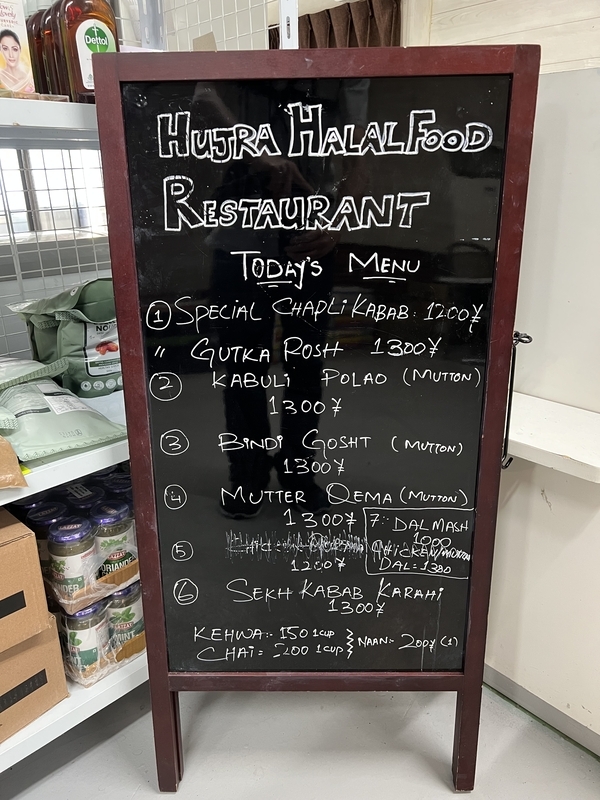 Dettol
HUJRA HALAL FOOD
RESTAURANT
TODAY'S MENU
① SPECIAL CHAPLI KABAB: 1200¥
" GUTKA ROSH 1300¥
② KABULI POLAO (MUTTON)
1300¥
③ BINDI GOSHT (MUTTON)
1300¥
④ MUTTER QEMA (MUTTON)
1300¥
7:- DAL MASH
1000
⑤
CHICKEN/MUTTON
1200¥
DAL = 1300
⑥ SEKH KABAB KARAHI
1300¥
KEHWA:- 150 1CUP
CHAI = 200 1CUP
NAAN = 200¥ (1)